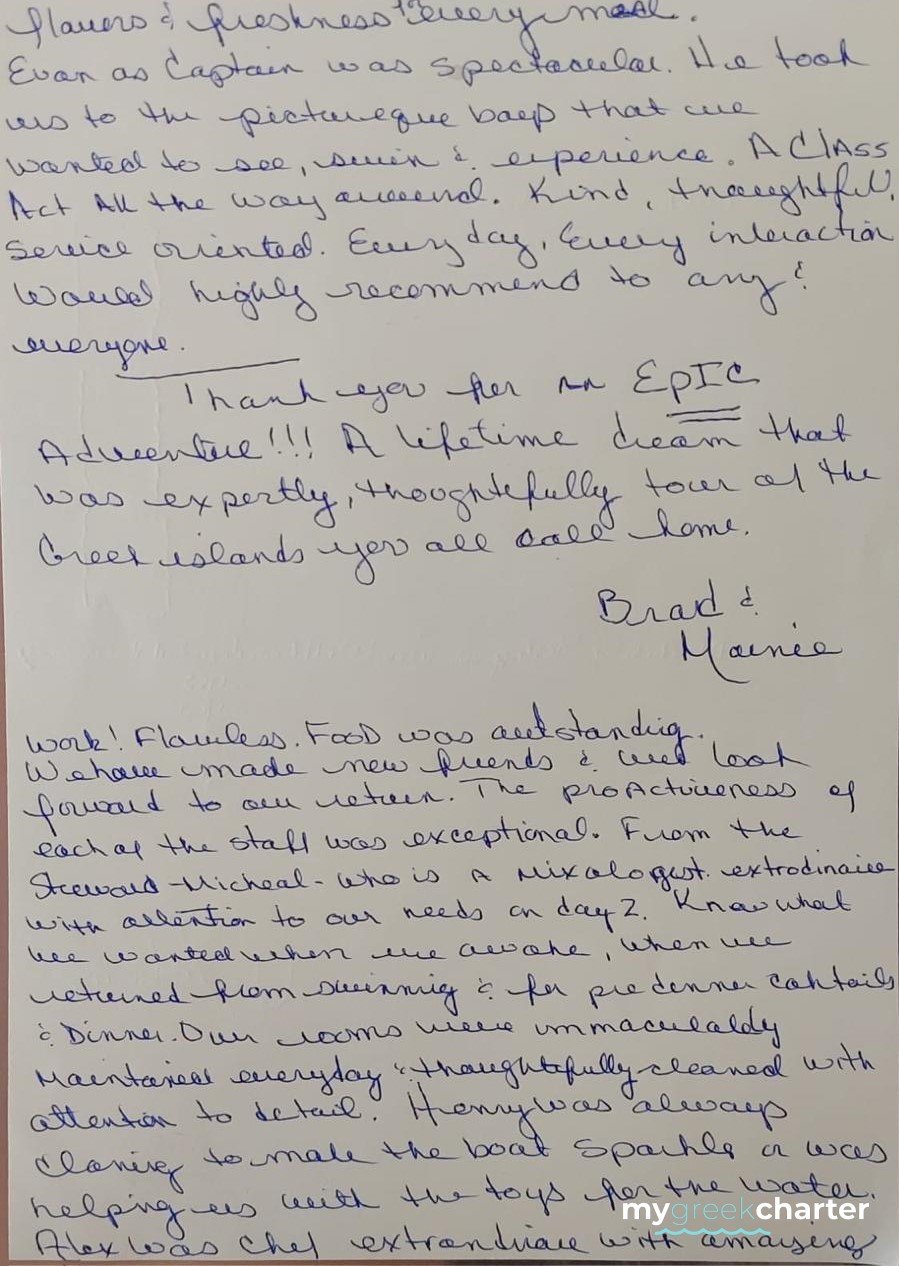 flavors & freshness every meal.
Evan as Captain was spectacular. He took
us to the pictureque bays that we
wanted to see, swim & experience. A CLASS
Act All the way around. Kind, thoughtful,
Service oriented. Every day, Every interaction
Would highly recommend to any &
everyone.
Thank you for an EPIC
Adventure!!! A lifetime dream that
was expertly, thoughtefully tour of the
Greek islands you all call home.
Brad &
Marnie
Work! Flawless. Food was outstanding.
We have made new friends & will look
forward to our return. The proActiveness of
each of the staff was exceptional. From the
Steward - Micheal - who is A Mixologist extrodinaire
with attention to our needs on day 2. Know what
we wanted when we awoke, when we
returned from swimming & for predinner cocktails
& Dinner. Our rooms were immaculaldy
Maintained everyday & thoughtfully cleaned with
attention to detail. Henry was always
cleaning to make the boat sparkle or was
helping us with the toys for the water.
Alex was Chef extrandinaire with amazing
mygreekcharter